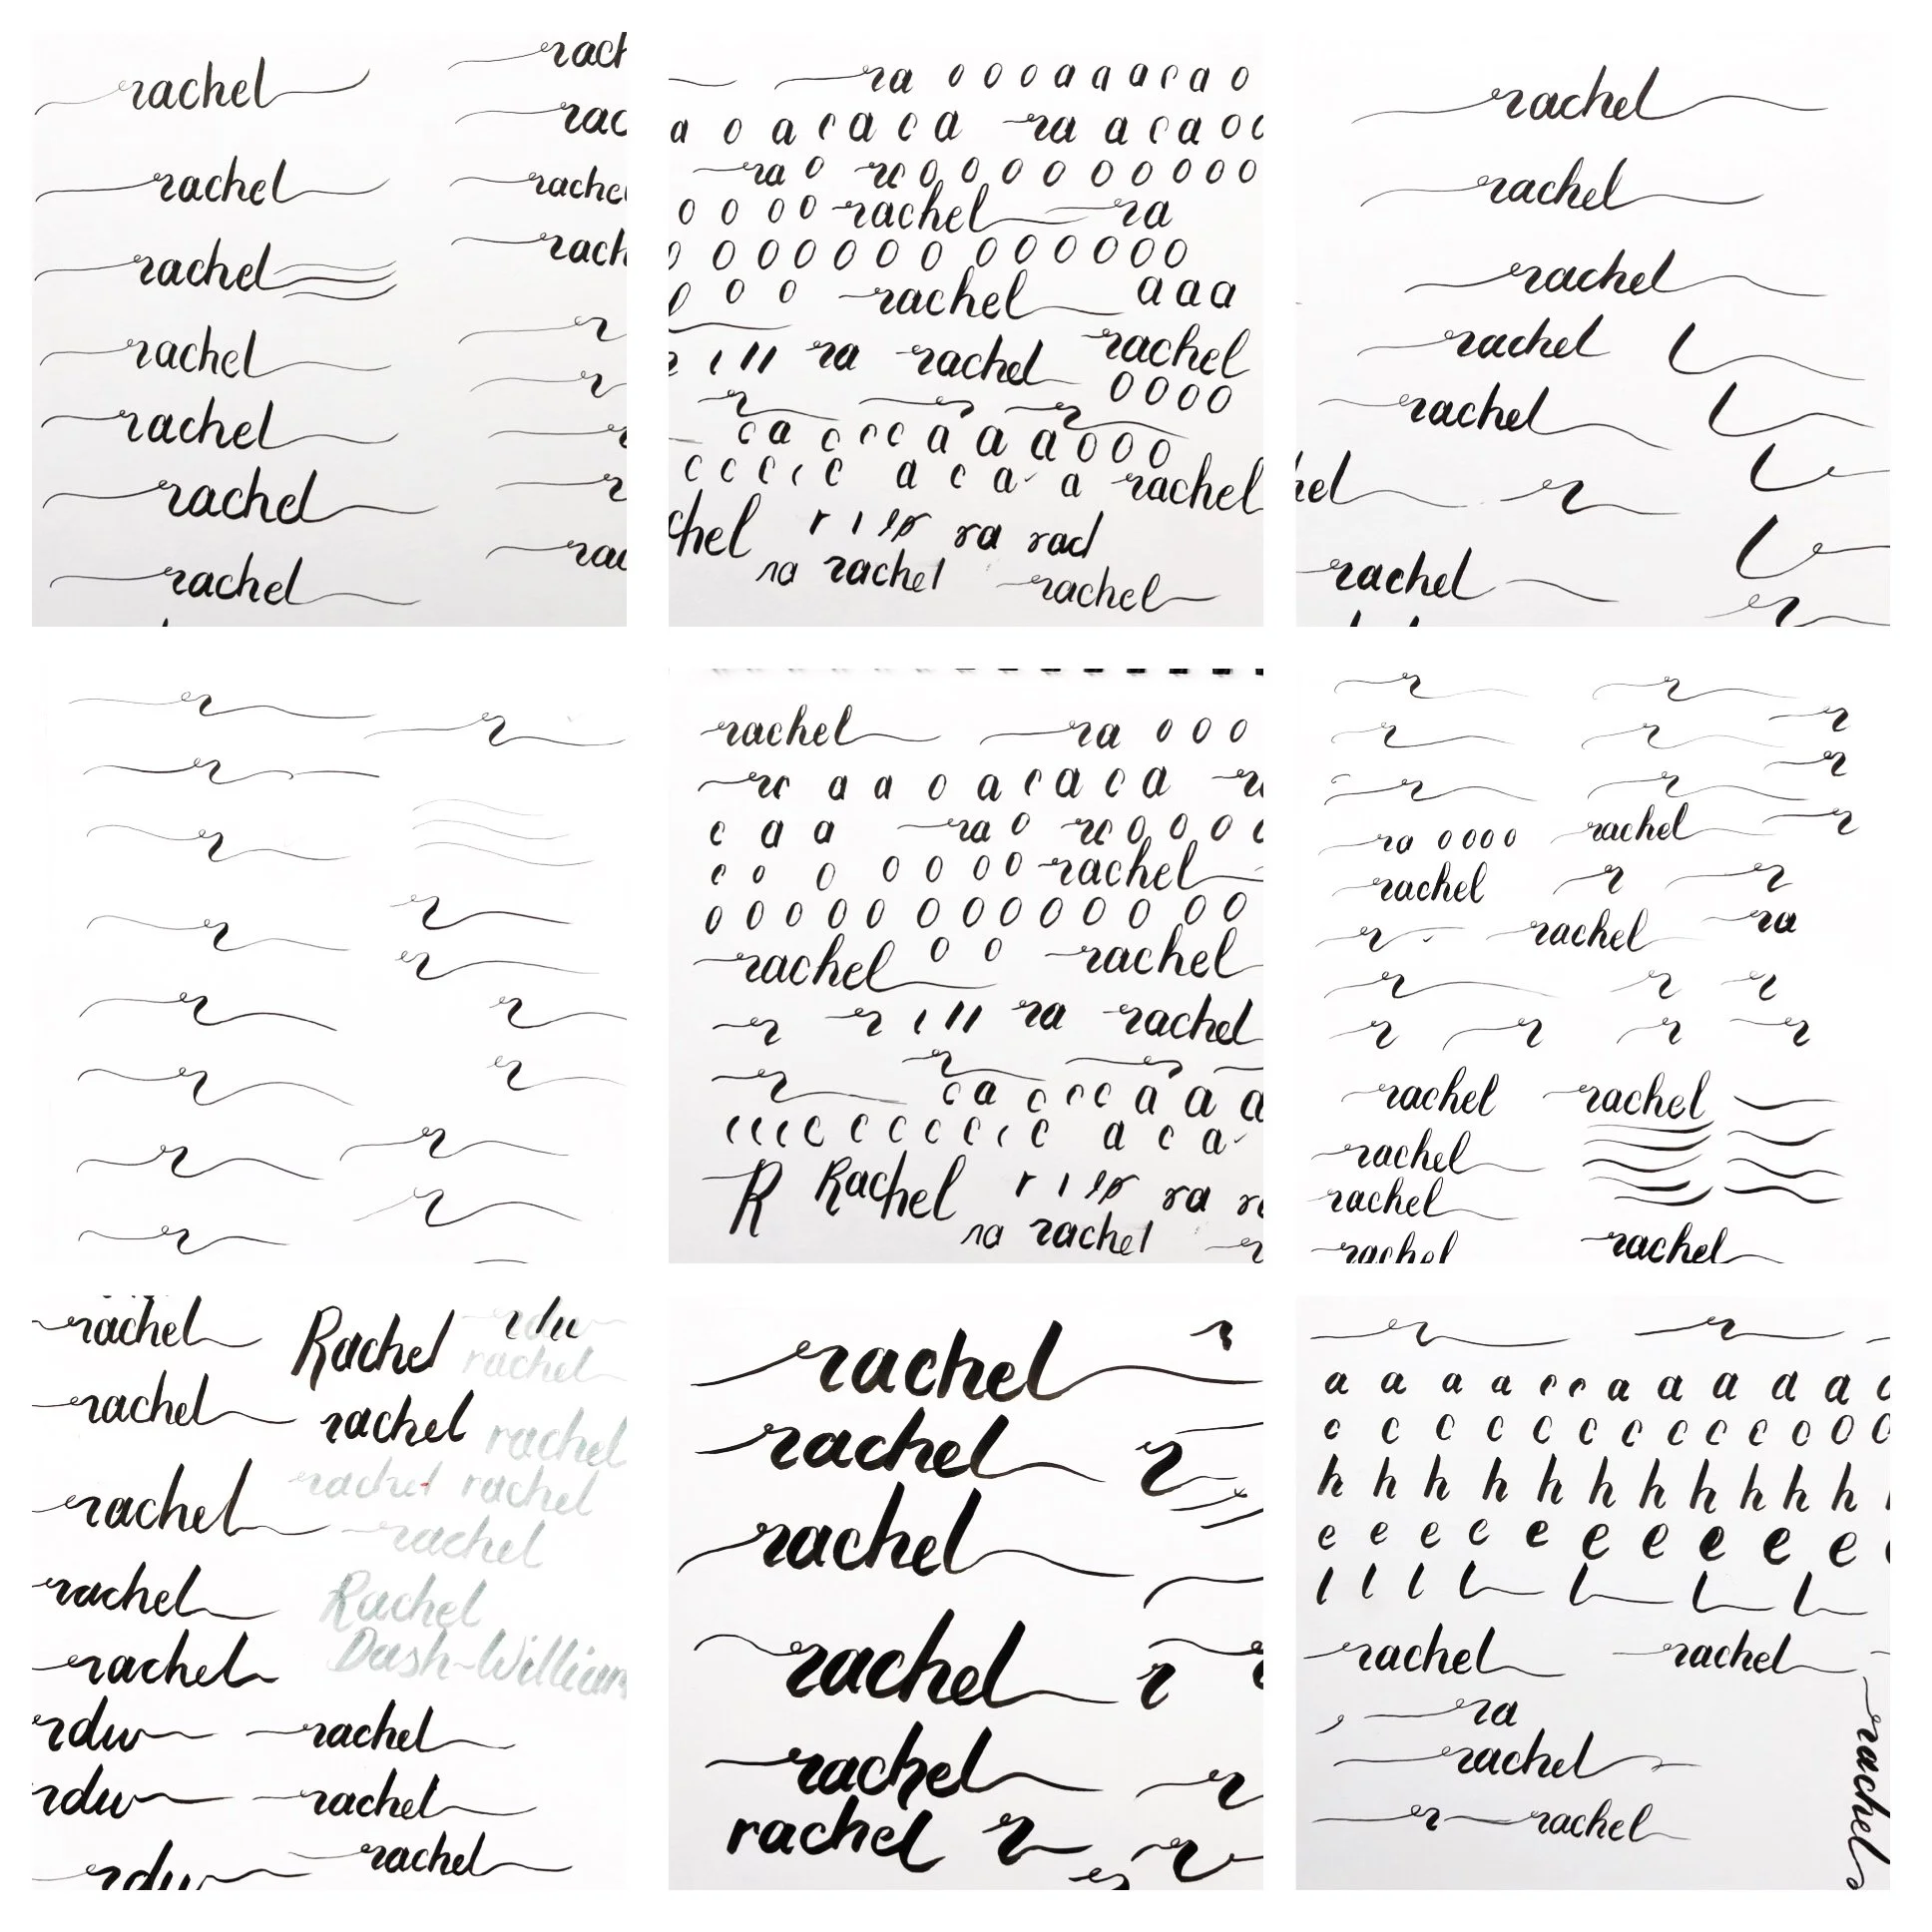 rachel
rachel
rachel
rachel
rachel
rachel
rachel
rach
rac
rachel
rach
r
r
r
r
ra o o o a a a c a o
a o a c a c a ra a c a o c
ra o rc o o o o o o o o
o o o o rachel ra
o o o o o o o o o o o o
o o o rachel a a a
ra rachel rachel
o o o o
r r r
c a c c c a a a o o o
c c c c c a c a a rachel
chel r ra rad
ra rachel rachel
rachel
rachel
rachel
rachel l
rachel l
hel r l
l
rachel
r
r r
r
r
r r
r
r r
r r
r r
r r
r
rachel ra o o o
rc a a o a c a c a
c a a ra o rc o o o
c o o o o o o rachel
o o o o o o o o o o o o
rachel o o rachel
r r ra rachel
r r
r c a c c c a a a
c c c c c c c c c a c a
R Rachel r ra
ra rachel
r r r
r r r
r r
ra o o o o rachel r
rachel r r
r rachel ra
r r r
r r r r
rachel rachel
rachel
rachel
rachel rachel
rachel Rachel rdw
rachel
rachel rachel rachel
rachel rachel
rachel rachel
rachel Rachel
rachel Dash-William
rdw rachel
rdw rachel
rdw rachel
rachel
rachel r
rachel
rachel r
rachel r
rachel r r
r r
a a a a c c a a a a a
c c c c c c c c c o o
h h h h h h h h h h h
e e e c e e e e e e
l l l l l l l
rachel rachel
ra
rachel
r rachel
rachel